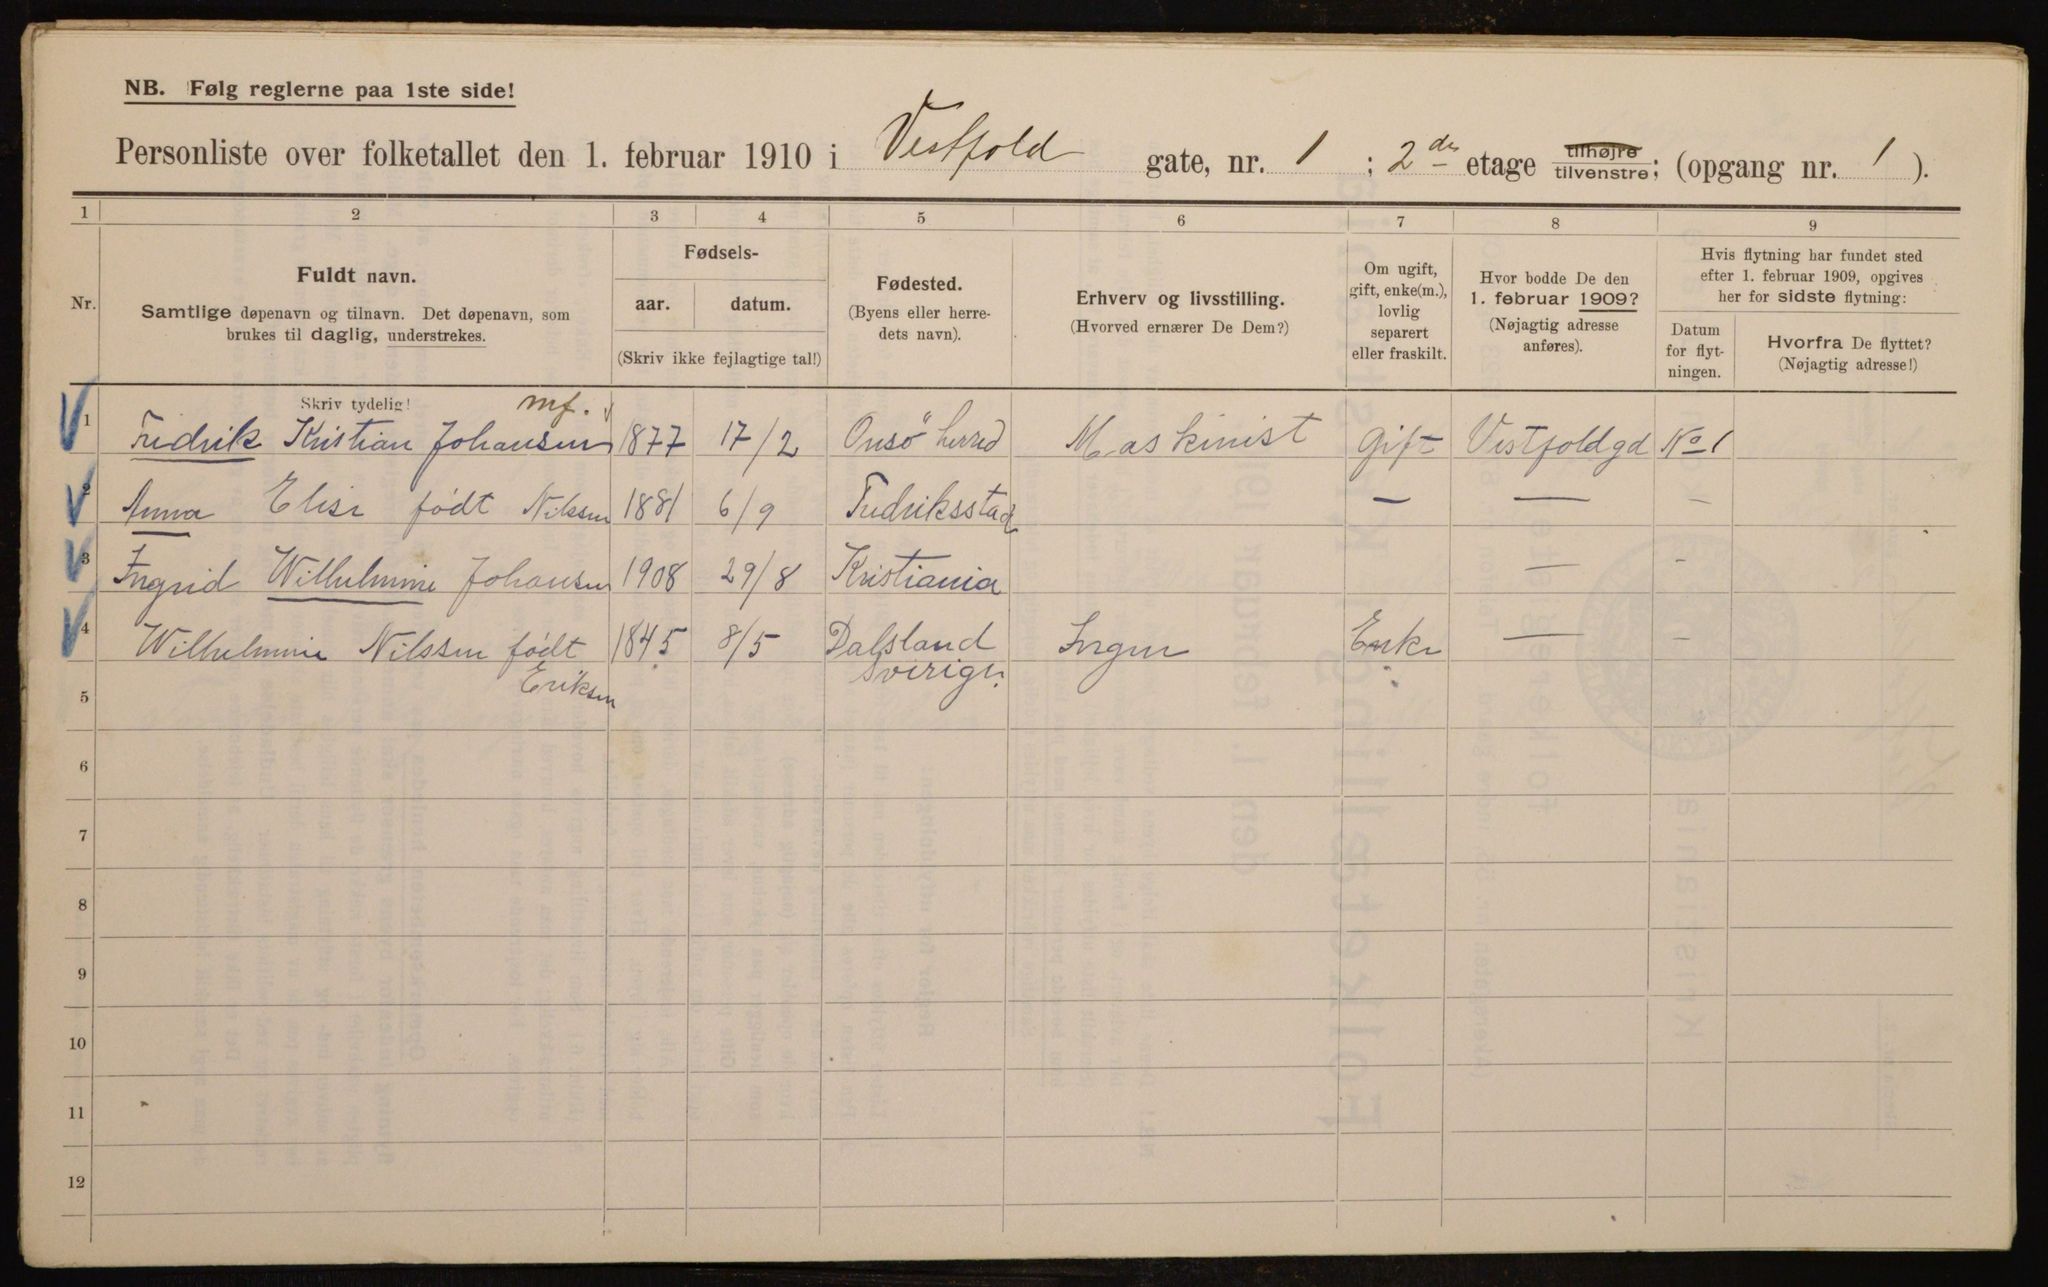 NB. Følg reglerne paa 1ste side!
Personliste over folketallet den 1. februar 1910 i Vestfold gate, nr. 1 ; 2den etage tilhøjre tilvenstre; (opgang nr. 1 ).
1 2 3 4 5 6 7 8 9
Nr.
Fuldt navn.
Samtlige døpenavn og tilnavn. Det døpenavn, som
brukes til daglig, understrekes.
Fødsels-
aar. datum.
(Skriv ikke fejlagtige tal!)
Fødested.
(Byens eller herre-
dets navn).
Erhverv og livsstilling.
(Hvorved ernærer De Dem?)
Om ugift,
gift, enke(m.),
lovlig
separert
eller fraskilt.
Hvor bodde De den
1. februar 1909?
(Nøjagtig adresse
anføres).
Hvis flytning har fundet sted
efter 1. februar 1909, opgives
her for sidste flytning:
Datum
for flyt-
ningen.
Hvorfra De flyttet?
(Nøjagtig adresse!)
Skriv tydelig! mf.
1 Fredrik Kristian Johansen 1877 17/2 Onsö herred Maskinist Gift Vestfoldgd No 1
2 Anna Elise født Nilssen 1881 6/9 Fredriksstad — — –
3 Ingrid Wilhelmine Johansen 1908 29/8 Kristiania — –
4 Wilhelmine Nilssen født 1845 8/5 Dalsland Ingen Enke — –
Eriksen Sverige.
5
6
7
8
9
10
11
12